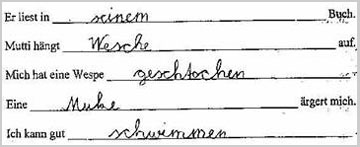 Er liest in seinem Buch.
Mutti hängt Wesche auf.
Mich hat eine Wespe geschtochen
Eine Muke ärgert mich.
Ich kann gut schwimmen